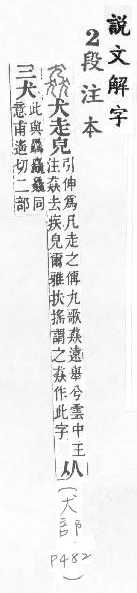 說文解字
2段注本
猋犬走皃
引伸爲凡走之偁九歌猋遠舉兮雲中王
注猋去疾皃爾雅扶搖謂之猋作此字
从
(犬部 P482)
三犬
此與同
意甫遙切二部